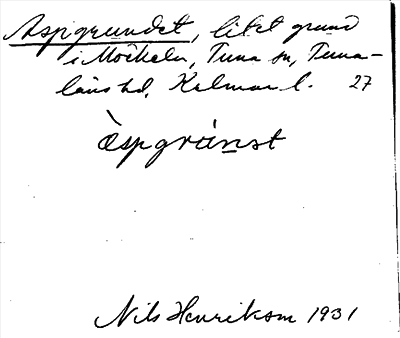 Aspgrundet, litet grund
i Möckeln, Tuna sn, Tuna-
läns hd, Kalmar l. 27
àspgrúnst
Nils Henrikson 1931